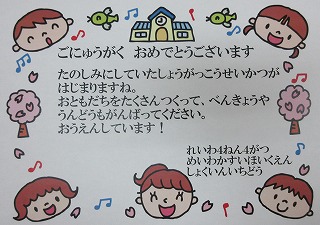 ごにゅうがく おめでとうございます
たのしみにしていたしょうがっこうせいかつが
はじまりますね。
おともだちをたくさんつくって、べんきょうや
うんどうもがんばってください。
おうえんしています！
れいわ4ねん4がつ
めいわかすいほいくえん
しょくいんいちどう